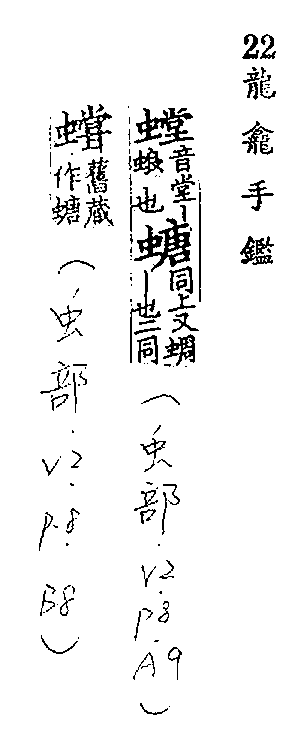 22龍龕手鑑
螳音堂｜蜋也螗同上又蜩｜也二同
(虫部.V2.P8.A9)
𧑽舊藏作螗
(虫部.V2.P8.B8)